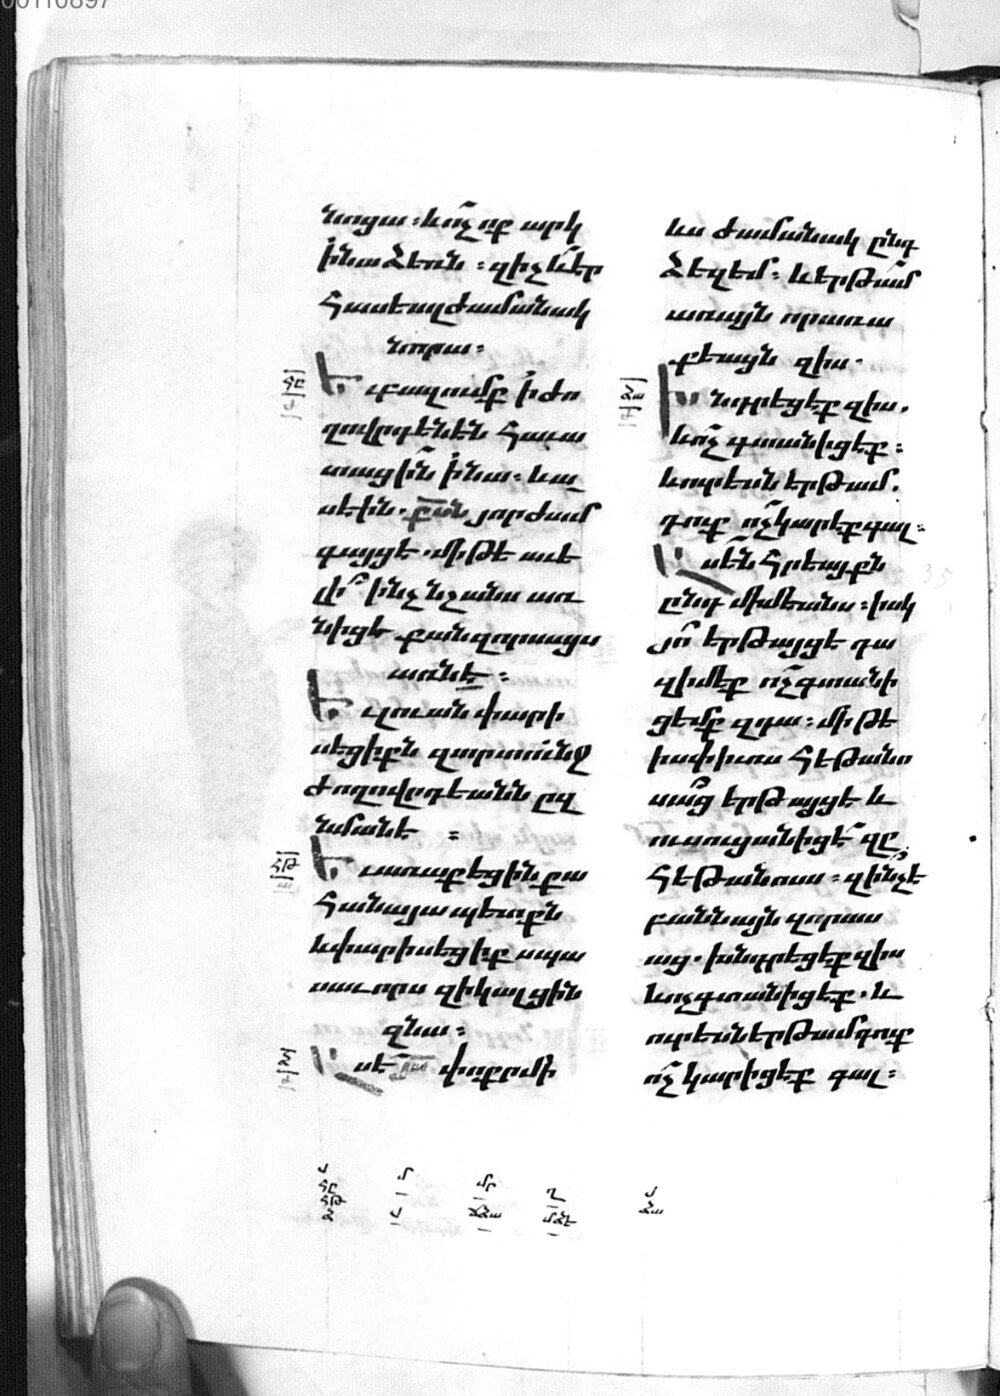 նորա։ և ոչ ոք արկ
ի նա ձեռն ։ զի չև էր
հասեալ ժամանակ
նորա։
Եւ բազումք ի ժո
ղովրդենէն հաւա
տացին ի նա։ և ա
սէին. քսն յորժամ
գայցէ. միթէ աւե
լի ինչ նշանս առ
նիցէ քան զոր սայս
առնէ ։
Եւ լուան փարի
սեցիքն զարտունջ
ժողովրդեանն ըզ
նմանէ ։
Եւ առաքեցին քա
հանայապետքն
և փարիսեցիք սպա
սաւորս զի կալցին
զնա։
Ասէ յս փոքր մի
ևս ժամանակ ընդ
ձեզ եմ։ և երթամ
առ այն որ առա
քեացն զիս.
Խնդրեցէք զիս.
և ոչ գտանիցէք։
և ուր ես ն երթամ.
դուք ոչ կարէք գալ։
Ասեն հրեայքն
ընդ միմեանս։ իսկ
յո երթայցէ դա
զի մեք ոչ գտանի
ցեմք զդա։ միթէ
ի սփիւռս հեթանո
սաց երթայցէ և
ուսուցանիցէ զը
հեթանոսս։ զինչ է
բանն այն զոր աս
աց. խնդրեցէք զիս
և ոչ գտանիցէք. և
ուր ես ն երթամ դուք
ոչ կարիցէք գալ։